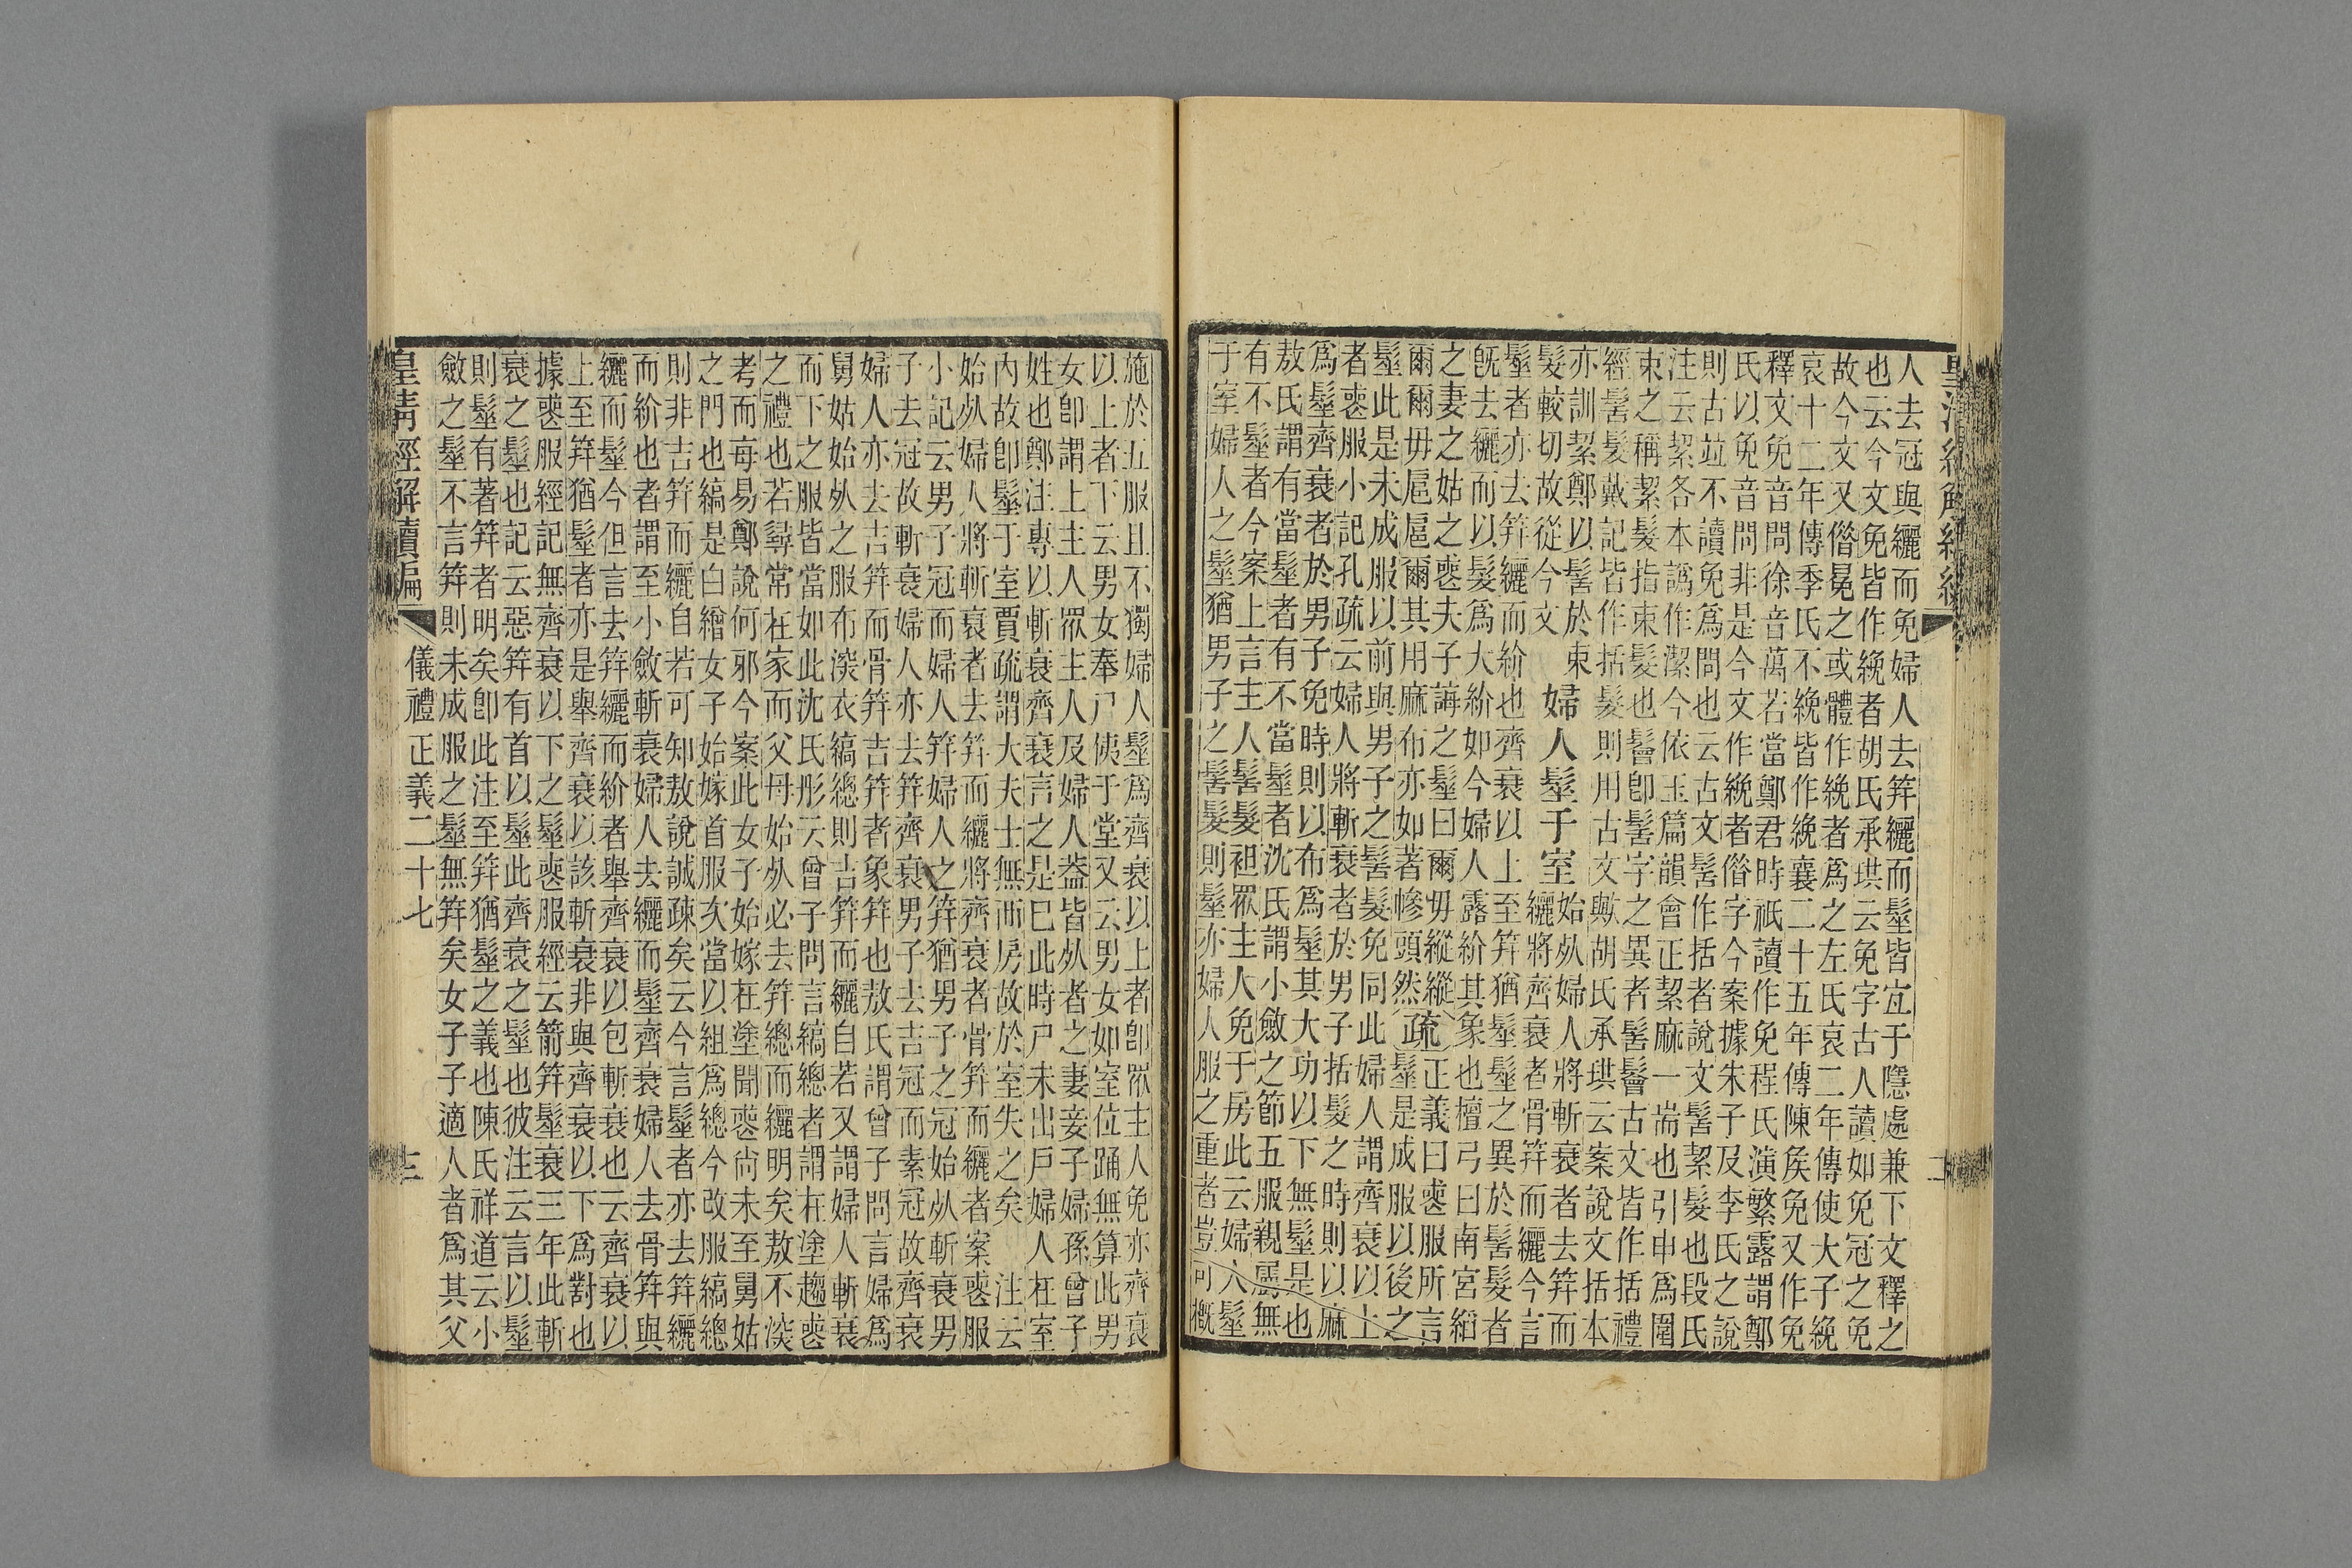 人去冠與纚而免婦人去笄纚而髽皆宜于隱處兼下文釋之
也云今文免皆作絻者胡氏承珙云免字古人讀如免冠之免
故今文又偕冕之或體作絻者爲之左氏哀二年傳使大子絻
哀十二年傳季氏不絻皆作絻襄二十五年傳陳矦免又作免
釋文免音問徐音萬若當鄭君時衹讀作免程氏演繁露謂鄭
氏以免音問非是今文作絻者偕字今案據朱子及李氏之說
則古竝不讀免爲問也云古文髺作括者說文髺絜髮也段氏
注云絜各本譌作潔今依玉篇韻會正絜麻一耑也引申爲圍
束之稱絜髮指束髮也鬠卽髺字之異者髺鬠古文皆作括禮
經髺髮戴記皆作括髮則用古文歟胡氏承珙云案說文括本
亦訓絜鄭以髺於束
髮較切故從今文
婦人髽于室
始㱙婦人將斬衰者去笄而
纚將齊衰者骨笄而纚今言
髽者亦去笄纚而紒也齊衰以上至笄猶髽髽之異於髺髮者
旣去纚而以髮爲大紒如今婦人露紒其象也檀弓曰南宮縚
之妻之姑之喪夫子誨之髽曰爾毋縱縱
爾爾毋扈扈爾其用麻布亦如著幓頭然
疏
正義曰喪服所言
髽是成服以後之
髽此是未成服以前與男子之髺髮免同此婦人謂齊衰以上
者喪服小記孔疏云婦人將斬衰者於男子括髮之時則以麻
爲髽齊衰者於男子免時則以布爲髽其大功以下無髽是也
敖氏謂有當髽者有不當髽者沈氏謂小斂之節五服親屬無
有不髽者今案上言主人髺髮袒眾主人免于房此云婦人髽
于室婦人之髽猶男子之髺髮則髽亦婦人服之重者豈可槪
施於五服且不獨婦人髽爲齊衰以上者卽眾主人免亦齊衰
以上者下云男女奉尸侇于堂又云男女如室位踊無算此男
女卽謂上主人眾主人及婦人葢皆㱙者之妻妾子婦孫曾子
姓也鄭注專以斬衰齊衰言之是巳此時尸未出戶婦人在室
內故卽髽于室賈疏謂大夫士無西房故於室失之矣 注云
始㱙婦人將斬衰者去笄而纚將齊衰者骨笄而纚者案喪服
小記云男子冠而婦人笄婦人之笄猶男子之冠始㱙斬衰男
子去冠故斬衰婦人亦去笄齊衰男子去吉冠而素冠故齊衰
婦人亦去吉笄而骨笄吉笄者象笄也敖氏謂曾子問言婦爲
舅姑始㱙之服布深衣縞總則吉笄而纚自若又謂婦人斬衰
而下之服皆當如此沈氏彤云曾子問言縞總者謂在塗趨喪
之禮也若尋常在家而父母始㱙必去笄總而纚明矣敖不深
考而每易鄭說何邪今案此女子始嫁在塗聞喪尙未至舅姑
之門也縞是白繒女子始嫁首服次當以組爲總今改服縞總
則非吉笄而纚自若可知敖說誠疎矣云今言髽者亦去笄纚
而紒也者謂至小斂斬衰婦人去纚而髽齊衰婦人去骨笄與
纚而髽今但言去笄纚而紒者舉齊衰以包斬衰也云齊衰以
上至笄猶髽者亦是舉齊衰以該斬衰非與齊衰以下爲對也
據喪服經記無齊衰以下之髽喪服經云箭笄髽衰三年此斬
衰之髽也記云惡笄有首以髽此齊衰之髽也彼注云言以髽
則髽有著笄者明矣卽此注至笄猶髽之義也陳氏祥道云小
斂之髽不言笄則未成服之髽無笄矣女子子適人者爲其父
皇清經解續編
儀禮正義二十七